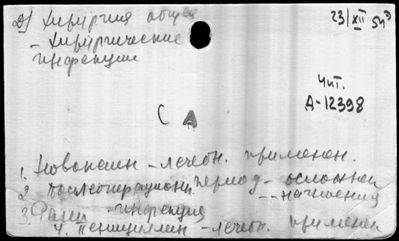 2) Хирургия общая
- Хирургические
инфекции
23/XII 54
Чит.
А-12398
С А
1. Новокаин - лечебн. применен.
2. Послеоперационн. период - осложнен
3. Раны - инфекция -- нагноения
4. Пенициллин - лечебн. применен